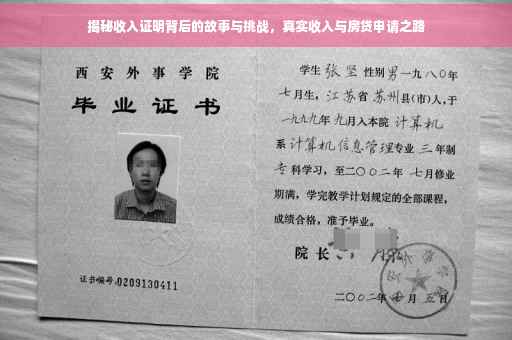 揭秘收入证明背后的故事与挑战，真实收入与房贷申请之路
西安外事学院
毕业证书
证书编号:0209130411
学生 张坚 性别 男 一九八〇年
七月生，江苏省 苏州县(市)人,于
一九九九年 九月入本院 计算机
系 计算机信息管理专业 三 年制
专 科学习，至二〇〇二年 七月修业
期满，学完教学计划规定的全部课程，
成绩合格，准予毕业。
院长
二〇〇二年 七 月 五 日